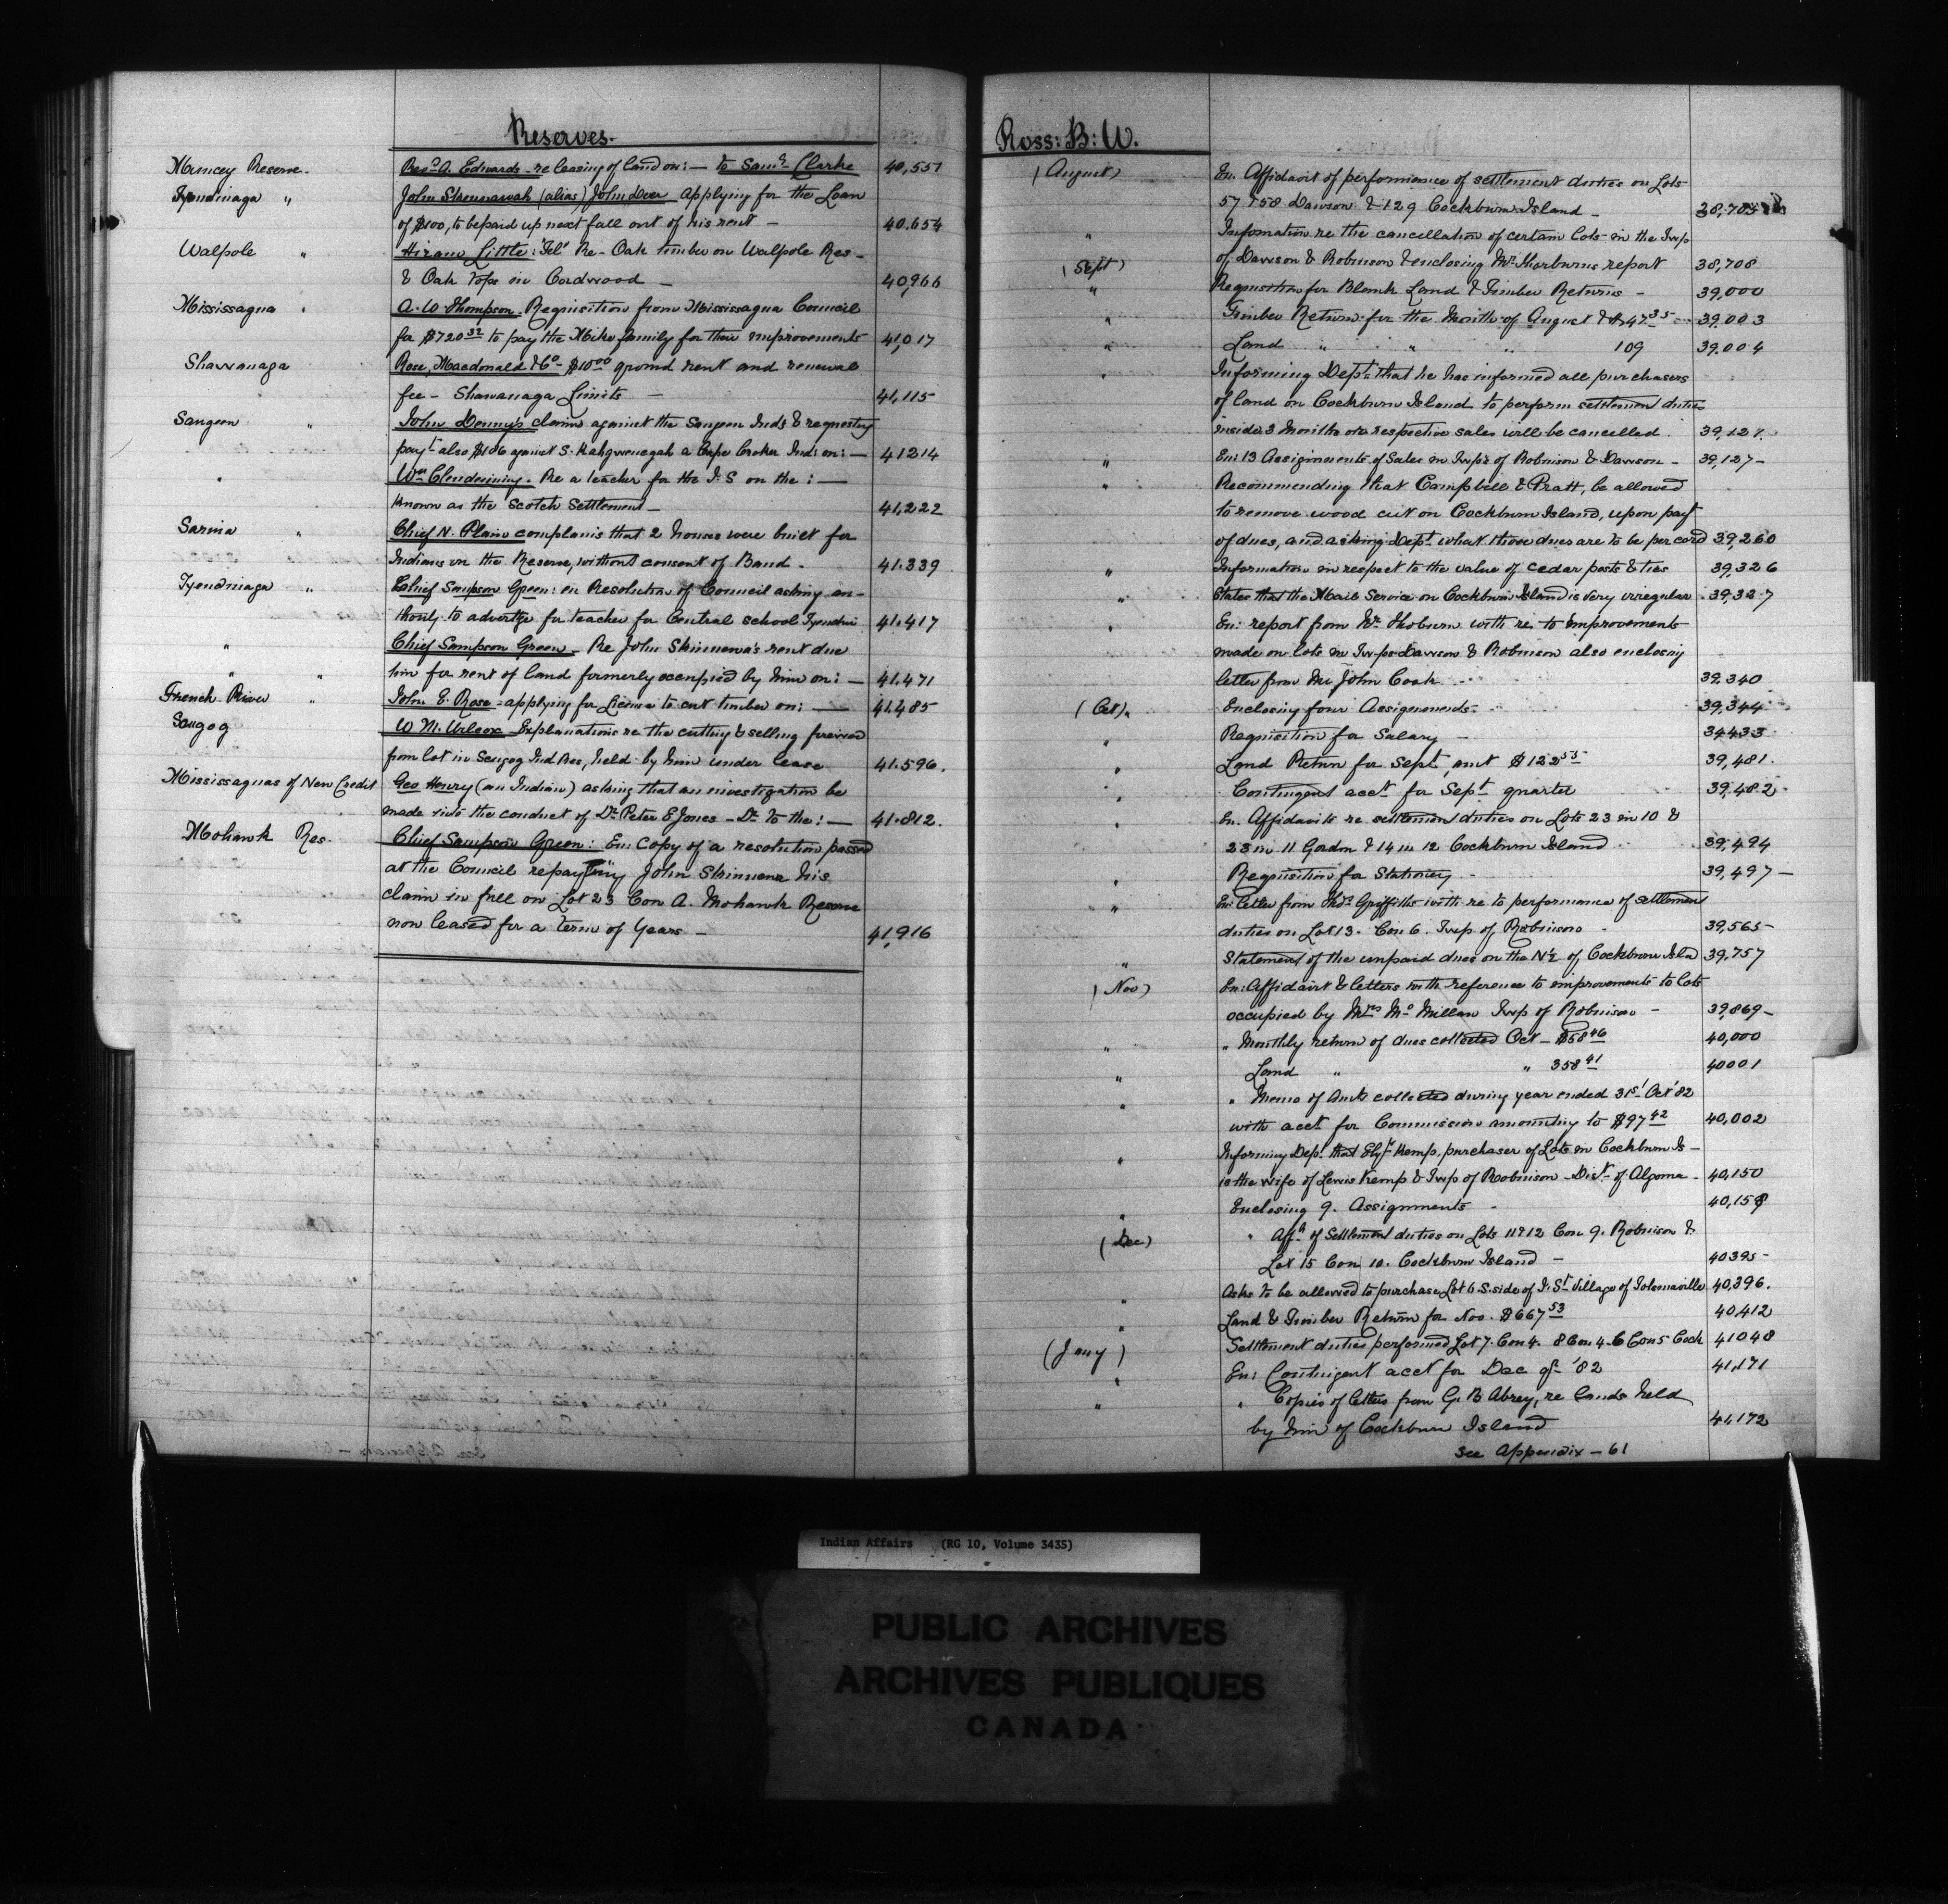 Reserves.
Muncey Reserve. Revd A. Edwards - re leasing of land on: — to Saml Clarke 40,551
Tyendinaga " John (alias) John Deer applying for the Loan
of $100, to be paid up next fall out of his rent — 40.654
Walpole " Hiram Little: Tel' Re - Oak timber on Walpole Res -
& Oak Tops in Cordwood — 40,966
Mississagua " A. W. Thompson. Requisition from Mississagua Council
for $720 32 to pay the Mike family for their improvements 41,017
Shawanaga Ross, Macdonald & Co $10 00 ground rent and renewal
fee - Shawanaga Limits — 41,115
Saugeen " John Denny's claim against the Saugeen Inds & requesting
payt also $106 against S. Kahgweuegah a Cape Croker Ind: on: — 41214
" Wm Clendenning. Re a teacher for the I. S on the: —
known as the Scotch Settlement — 41,222
Sarnia " Chief N. Plain complains that 2 houses were built for
Indians on the Reserve, without consent of Band. 41.339
Tyendinaga " Chief Sampson Green: en Resolution of Council asking au-
thority to advertize for teacher for Central school 41.417
" Chief Sampson Green - Re John Skinnewa's rent due
" " him for rent of land formerly occupied by him on: — 41.471
French River " John E. Rose - applying for License to cut timber on: — 41485
Scugog W. M. Wilcox - Explanations re the cutting & selling firewood
from lot in Scugog Ind Res, held by him under lease 41.596.
Mississaguas of New Credit Geo Henry (an Indian) asking that an investigation be
made into the conduct of Dr Peter E Jones - Dr to the: — 41.812.
Mohawk Res. Chief Sampson Green: En: Copy of a resolution passed
at the Council repaying John Skinnewa his
claim in full on Lot 23 Con A. Mohawk Reserve
now leased for a term of Years — 41,916
Ross: B: W.
(August) En. Affidavit of performance of settlement duties on Lots
57 & 58 Dawson & 129 Cockburn Island - 38,705
" Information re the cancellation of certain lots in the Twp
(Sept) of Dawson & Robinson & enclosing Mr. Thorburns report 38,708
" Requisition for Blank Land & Timber Returns - 39,000
" Timber Return for the Month of August 47.35 39.003
" Land " " " 109 39.004
" Informing Dept that he has informed all purchasers
of land on Cockburn Island to perform settlement duties
inside 3 Months or respective sales will be cancelled. 39,121
" En: 13 Assignments of Sales in Twps of Robinson & Dawson - 39,127-
" Recommending that Campbell & Pratt, be allowed
to remove wood cut on Cockburn Island, upon payt
of dues, and asking Dept what those dues are to be per cord 39,260
" Information in respect to the value of cedar posts & ties 39,326
" States that the Mail Service on Cockburn Island is very irregular 39,327
" En: report from Mr. Thorburn with re to improvements
made on lots in Twps Dawson & Robinson also enclosing
letter from Mr John Cook 39.340
(Oct) " Enclosing four Assignments. 39,344
" Requisition for Salary — 34433
" Land Return for Sept, amt $122 55 39,481.
" Contingent acct for Sept quarter 39,482
" En. Affidavits re settlement duties on Lots 23 in 10 &
23 in 11 Gordon & 14 in 12 Cockburn Island 39,494
" Requisition for Stationery 39,497 -
" En: Letter from Thos Griffiths with re to performance of settlement
duties on Lot 13. Con 6. Twp. of Robinson 39,565-
" Statement of the unpaid dues on the N½ of Cockburn Isld 39,757
(Nov) En: Affidavit & letters with reference to improvements to lots
occupied by Mrs McMillan Twp of Robinson - 39,869-
" " Monthly return of dues collected Oct - $58 46 40,000
" Land " " 358 41 40001
" " Memo of Amts collected during year ended 31st Oct '82
with acct for Commission amounting to $97 42 40,002
" Informing Dept that Elizh Kemp, purchaser of Lots in Cockburn Is -
is the wife of Lewis Kemp & Twp of Robinson - Dist of Algoma - 40,150
" Enclosing 9. Assignments 40,158
(Dec) " Affts of Settlement duties on Lots 11 & 12 Con 9. Robinson &
Lot 15 Con 10. Cockburn Island - 40395-
" Asks to be allowed to purchase Lot 6 S. side of St Village of Tolsmaville 40,396.
" Land & Timber Return for Nov. $667 53 40,412
(Jany) Settlement duties performed Lot 7. Con 4. 8 Con 4. 6 Con 5 Cock 41048
" En: Contingent acct for Dec qr '82 41,171
" " Copies of letters from G. B Abrey, re lands held
by him of Cockburn Island 41,172
See Appendix - 61
Indian Affairs (RG 10, Volume 3435)
PUBLIC ARCHIVES
ARCHIVES PUBLIQUES
CANADA